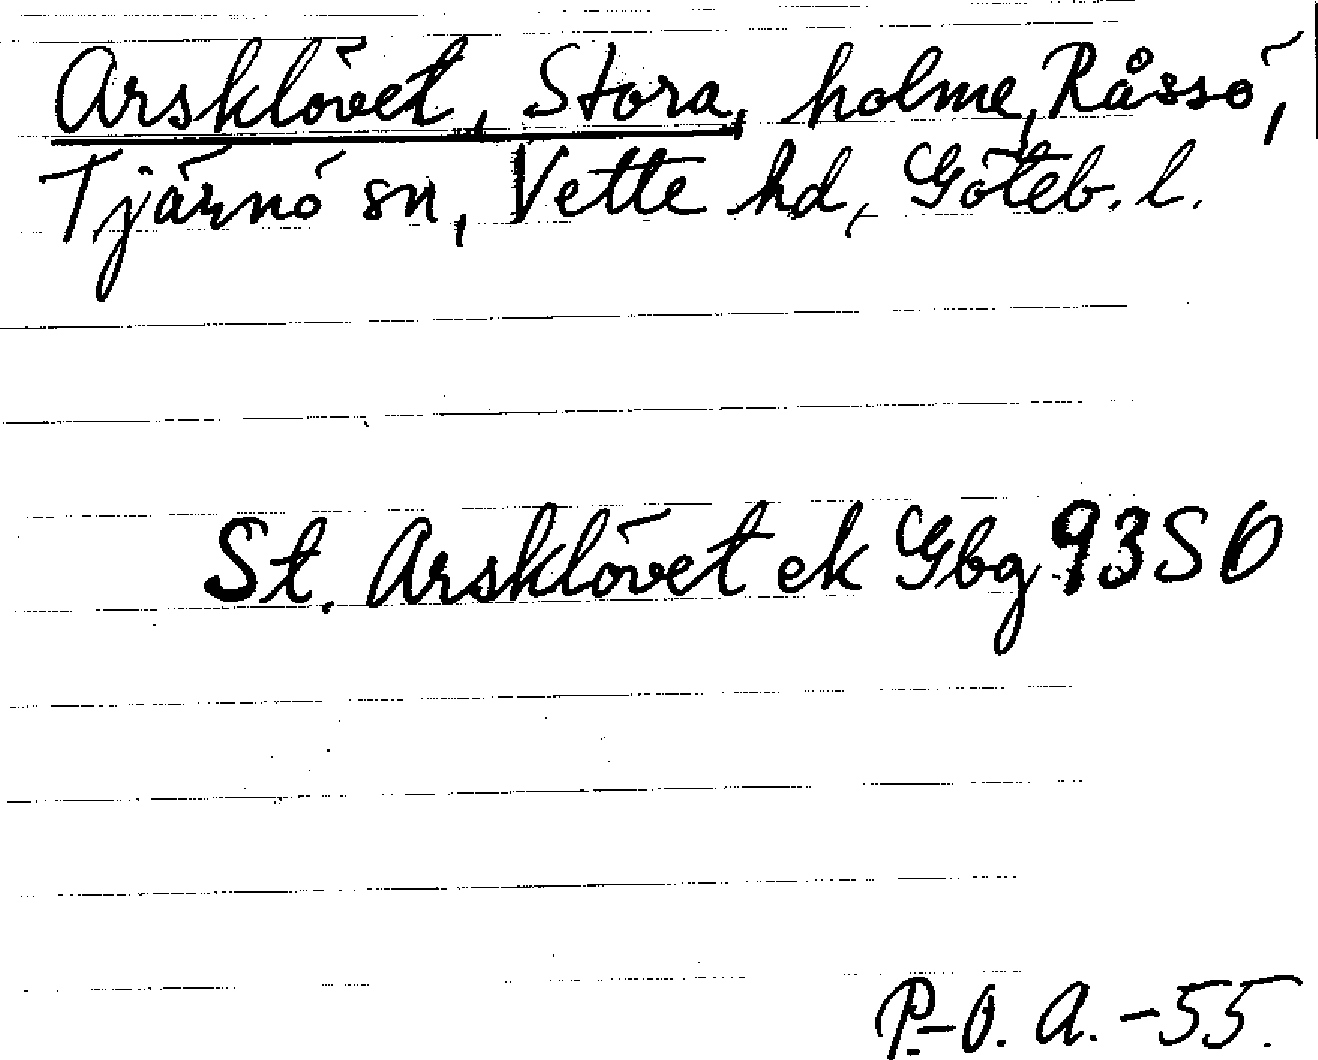 Arsklövet, Stora, holme, Råssö,
Tjärnö sn, Vette hd, Göteb. l.
St. Arsklövet ek Gbg 93SO
P.-O. A. -55.